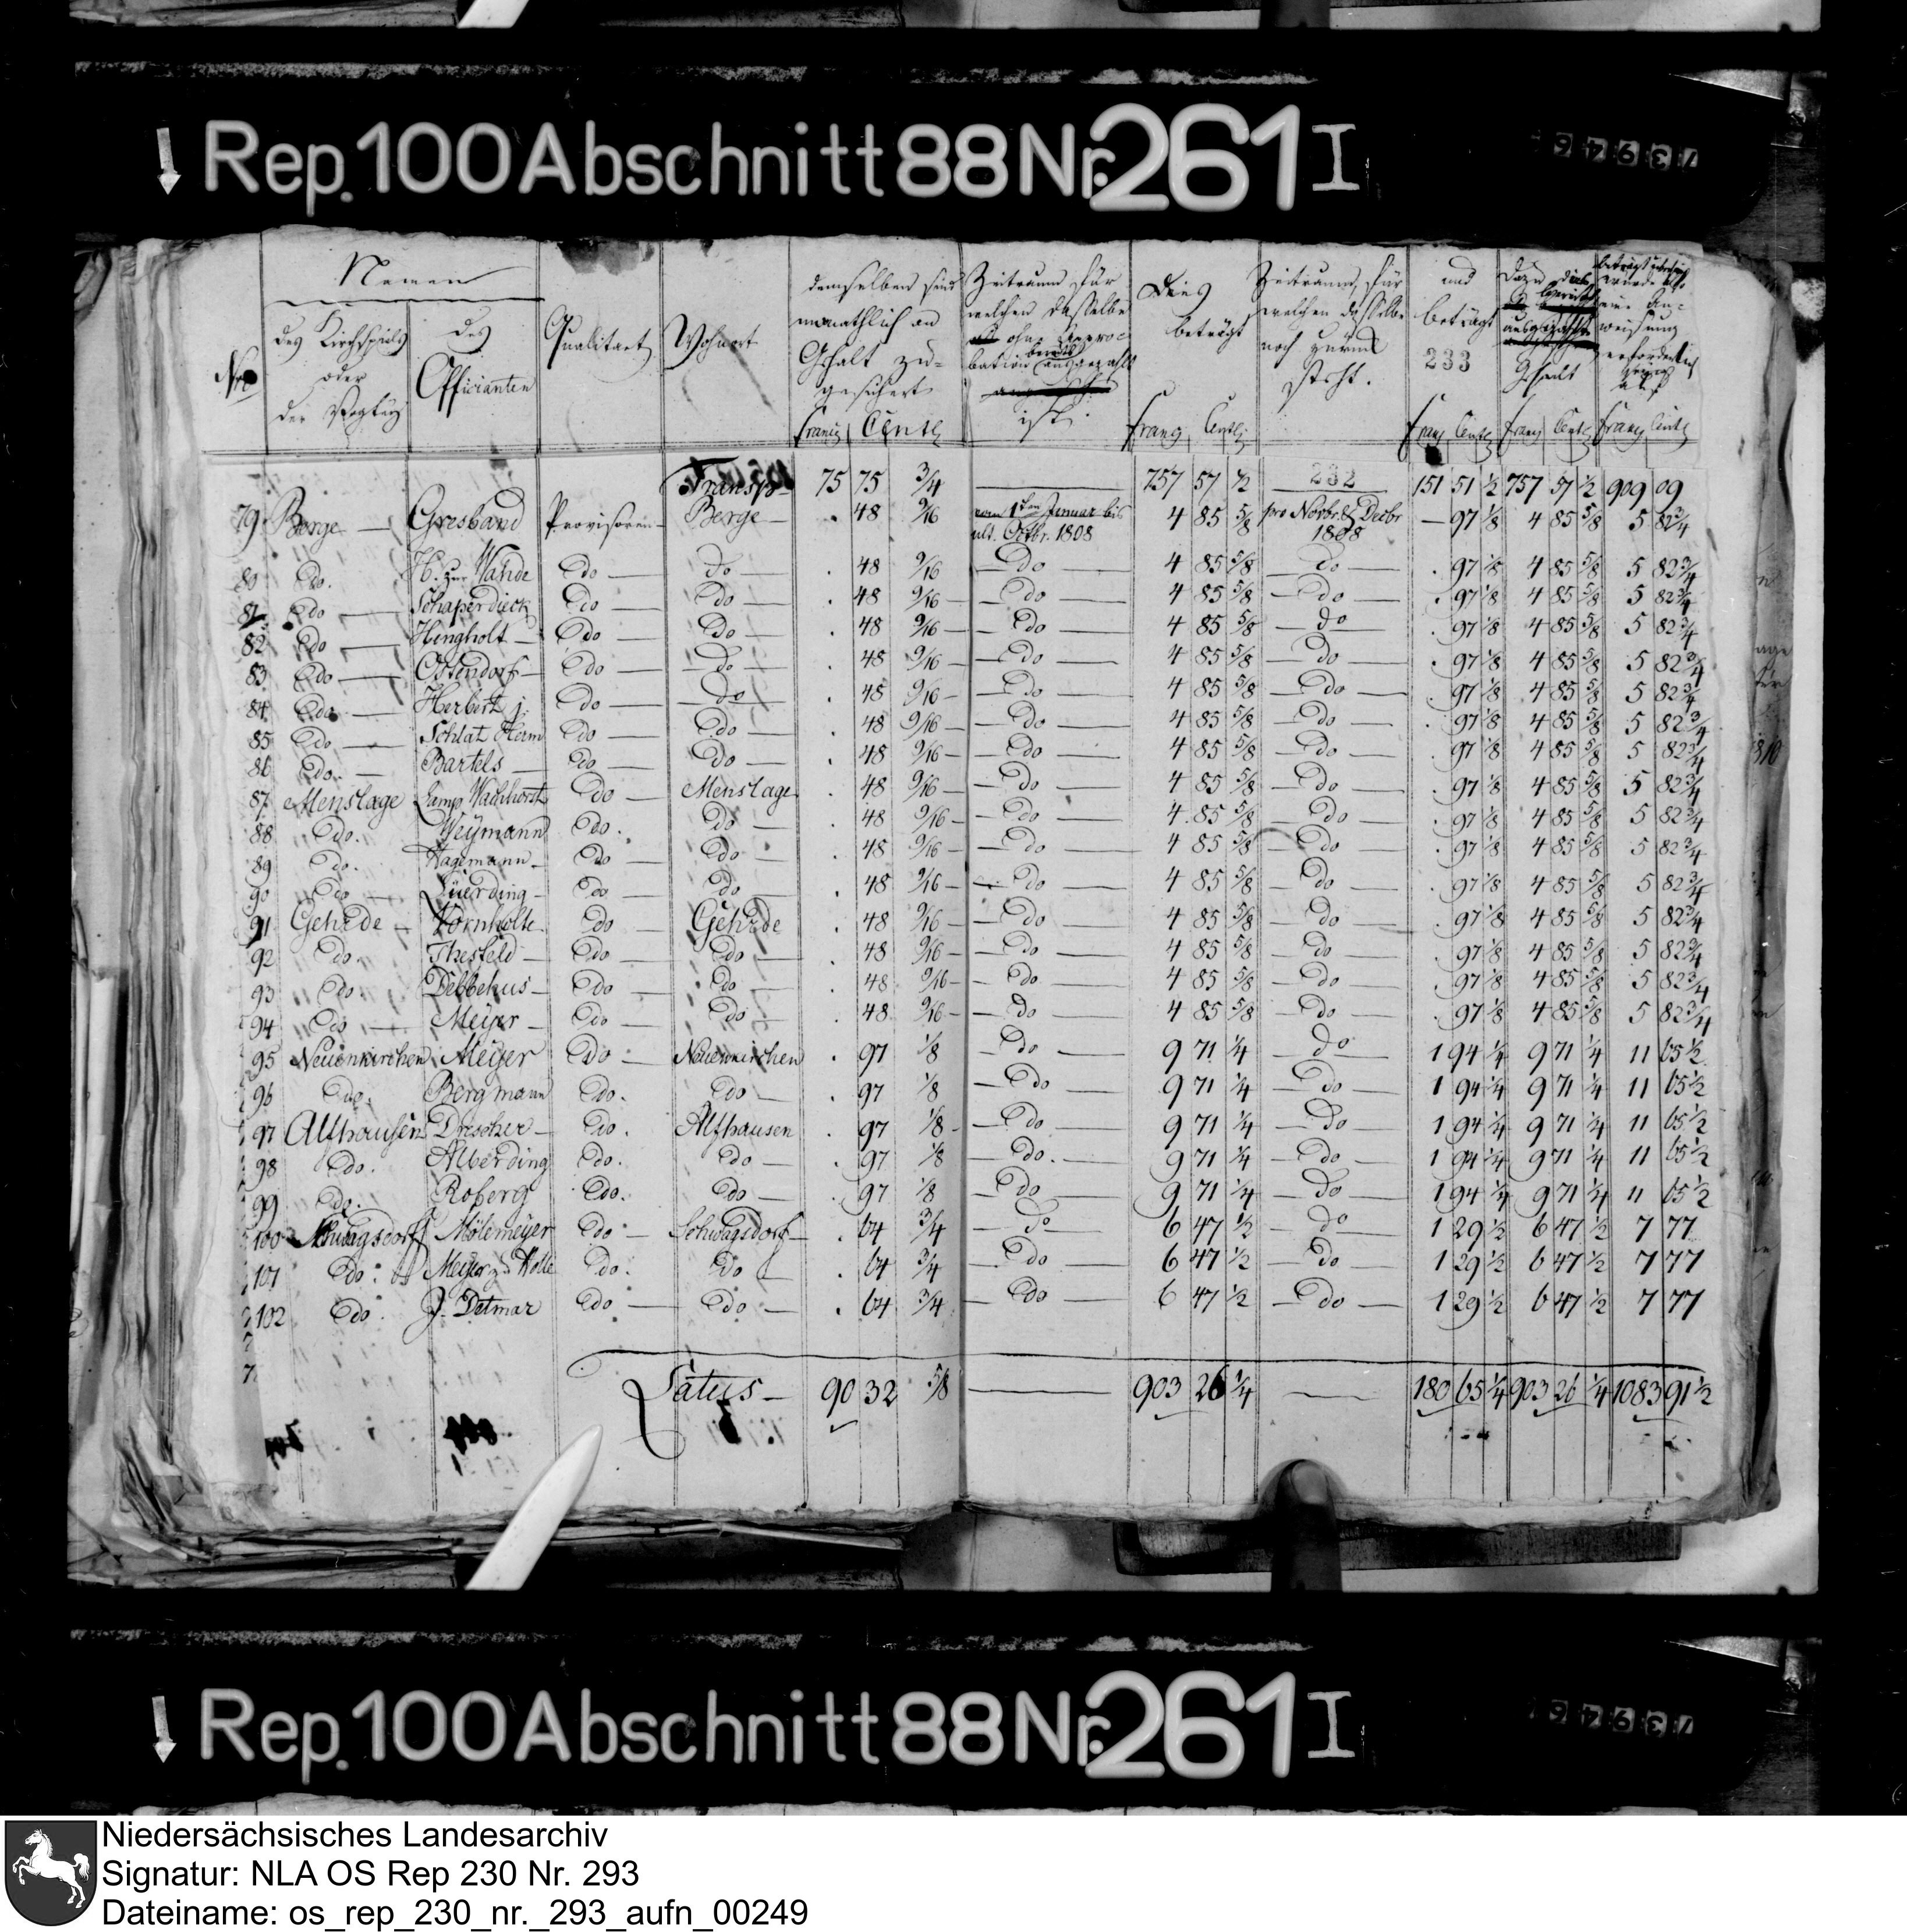 Rep. 100 Abschnitt 88 Nr. 261 I
73946
Namen
des Kirchspiels oder der Vogtey
des Officianten
Qualitaet
Wohnort
demselben sind monathlich an Gehalt zugesichert
Zeitraum für welchen dasselbe ohne Approbation bereits ausgezahlt ist.
Dies beträgt
Zeitraum, für welchen dasselbe noch zurück steht.
und beträgt
233
Francs Cents
Francs Cents
Francs Cents Francs Cents Francs Cents
Transp. 75 75 3/4 — 757 57 1/2 232 151 51 1/2 757 57 1/2 909 09
79 Berge — Gresband Provisoren — Berge — . 48 9/16 vom 1ten Januar bis ult. Octbr. 1808 4 85 5/8 pro Novbr. & Decbr 1808 — 97 1/8 4 85 5/8 5 82 3/4
80 do. H. zur Wahde do — do — . 48 9/16 — do — 4 85 5/8 — do — . 97 1/8 4 85 5/8 5 82 3/4
81 do — Schaperdieck do — do — . 48 9/16 — do — 4 85 5/8 — do — . 97 1/8 4 85 5/8 5 82 3/4
82 do — Hengholt — do — do — . 48 9/16 — do — 4 85 5/8 — do — . 97 1/8 4 85 5/8 5 82 3/4
83 do — Ostendorf — do — do — . 48 9/16 — do — 4 85 5/8 — do — . 97 1/8 4 85 5/8 5 82 3/4
84 do — Herbert j. do — do — . 48 9/16 — do — 4 85 5/8 — do — . 97 1/8 4 85 5/8 5 82 3/4
85 do — Schlat Herm do — do — . 48 9/16 — do — 4 85 5/8 — do — . 97 1/8 4 85 5/8 5 82 3/4
86 do. — Bartels — do — do — . 48 9/16 — do — 4 85 5/8 — do — . 97 1/8 4 85 5/8 5 82 3/4
87 Menslage Wachhorst do — Menslage . 48 9/16 — do — 4 85 5/8 — do — . 97 1/8 4 85 5/8 5 82 3/4
88 do. Weymann do. do — . 48 9/16 — do — 4 85 5/8 — do — . 97 1/8 4 85 5/8 5 82 3/4
89 do. Hagemann — do — do — . 48 9/16 — do — 4 85 5/8 — do — . 97 1/8 4 85 5/8 5 82 3/4
90 do — Lüerding — do — do — . 48 9/16 — do — 4 85 5/8 — do — . 97 1/8 4 85 5/8 5 82 3/4
91 Gehrde — Vornholte do — Gehrde . 48 9/16 — do — 4 85 5/8 — do — . 97 1/8 4 85 5/8 5 82 3/4
92 do. Thesfeld — do — do — . 48 9/16 — do — 4 85 5/8 — do — . 97 1/8 4 85 5/8 5 82 3/4
93 do. Debbehus — do — do — . 48 9/16 — do — 4 85 5/8 — do — . 97 1/8 4 85 5/8 5 82 3/4
94 do — Meijer — do — do — . 48 9/16 — do — 4 85 5/8 — do — . 97 1/8 4 85 5/8 5 82 3/4
95 Neuenkirchen Meijer do — Neuenkirchen . 97 1/8 — do — 9 71 1/4 — do — 1 94 1/4 9 71 1/4 11 65 1/2
96 do. Bergmann do. do — . 97 1/8 — do — 9 71 1/4 — do — 1 94 1/4 9 71 1/4 11 65 1/2
97 Alfhausen Drescher — do. Alfhausen . 97 1/8 — do — 9 71 1/4 — do — 1 94 1/4 9 71 1/4 11 65 1/2
98 do. Alberding do. do — . 97 1/8 — do. — 9 71 1/4 — do — 1 94 1/4 9 71 1/4 11 65 1/2
99 do. Roberg do. do — . 97 1/8 — do — 9 71 1/4 — do — 1 94 1/4 9 71 1/4 11 65 1/2
100 Schwagsdorf Mölemeyer do — Schwagsdorf — . 64 3/4 — do — 6 47 1/2 — do — 1 29 1/2 6 47 1/2 7 77
101 do. Meijer z. Wolle do. do — . 64 3/4 — do — 6 47 1/2 — do — 1 29 1/2 6 47 1/2 7 77
102 do. J. Detmar do — do — . 64 3/4 — do — 6 47 1/2 — do — 1 29 1/2 6 47 1/2 7 77
Latus — 90 32 5/8 — 903 26 1/4 — 180 65 1/4 903 26 1/4 1083 91 1/2
Rep. 100 Abschnitt 88 Nr. 261 I
73946
Niedersächsisches Landesarchiv
Signatur: NLA OS Rep 230 Nr. 293
Dateiname: os_rep_230_nr._293_aufn_00249